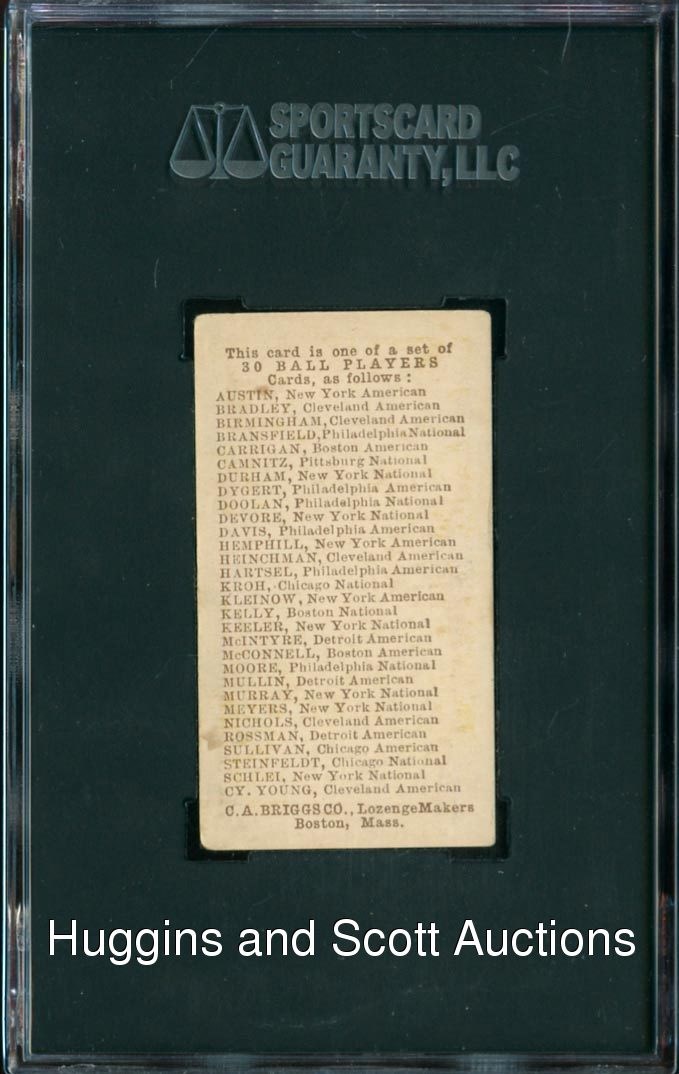 SPORTSCARD
GUARANTY, LLC
This card is one of a set of
30 BALL PLAYERS
Cards, as follows :
AUSTIN, New York American
BRADLEY, Cleveland American
BIRMINGHAM, Cleveland American
BRANSFIELD, Philadelphia National
CARRIGAN, Boston American
CAMNITZ, Pittsburg National
DURHAM, New York National
DYGERT, Philadelphia American
DOOLAN, Philadelphia National
DEVORE, New York National
DAVIS, Philadelphia American
HEMPHILL, New York American
HEINCHMAN, Cleveland American
HARTSEL, Philadelphia American
KROH, Chicago National
KLEINOW, New York American
KELLY, Boston National
KEELER, New York National
McINTYRE, Detroit American
McCONNELL, Boston American
MOORE, Philadelphia National
MULLIN, Detroit American
MURRAY, New York National
MEYERS, New York National
NICHOLS, Cleveland American
ROSSMAN, Detroit American
SULLIVAN, Chicago American
STEINFELDT, Chicago National
SCHLEI, New York National
CY. YOUNG, Cleveland American
C. A. BRIGGS CO., Lozenge Makers
Boston, Mass.
Huggins and Scott Auctions